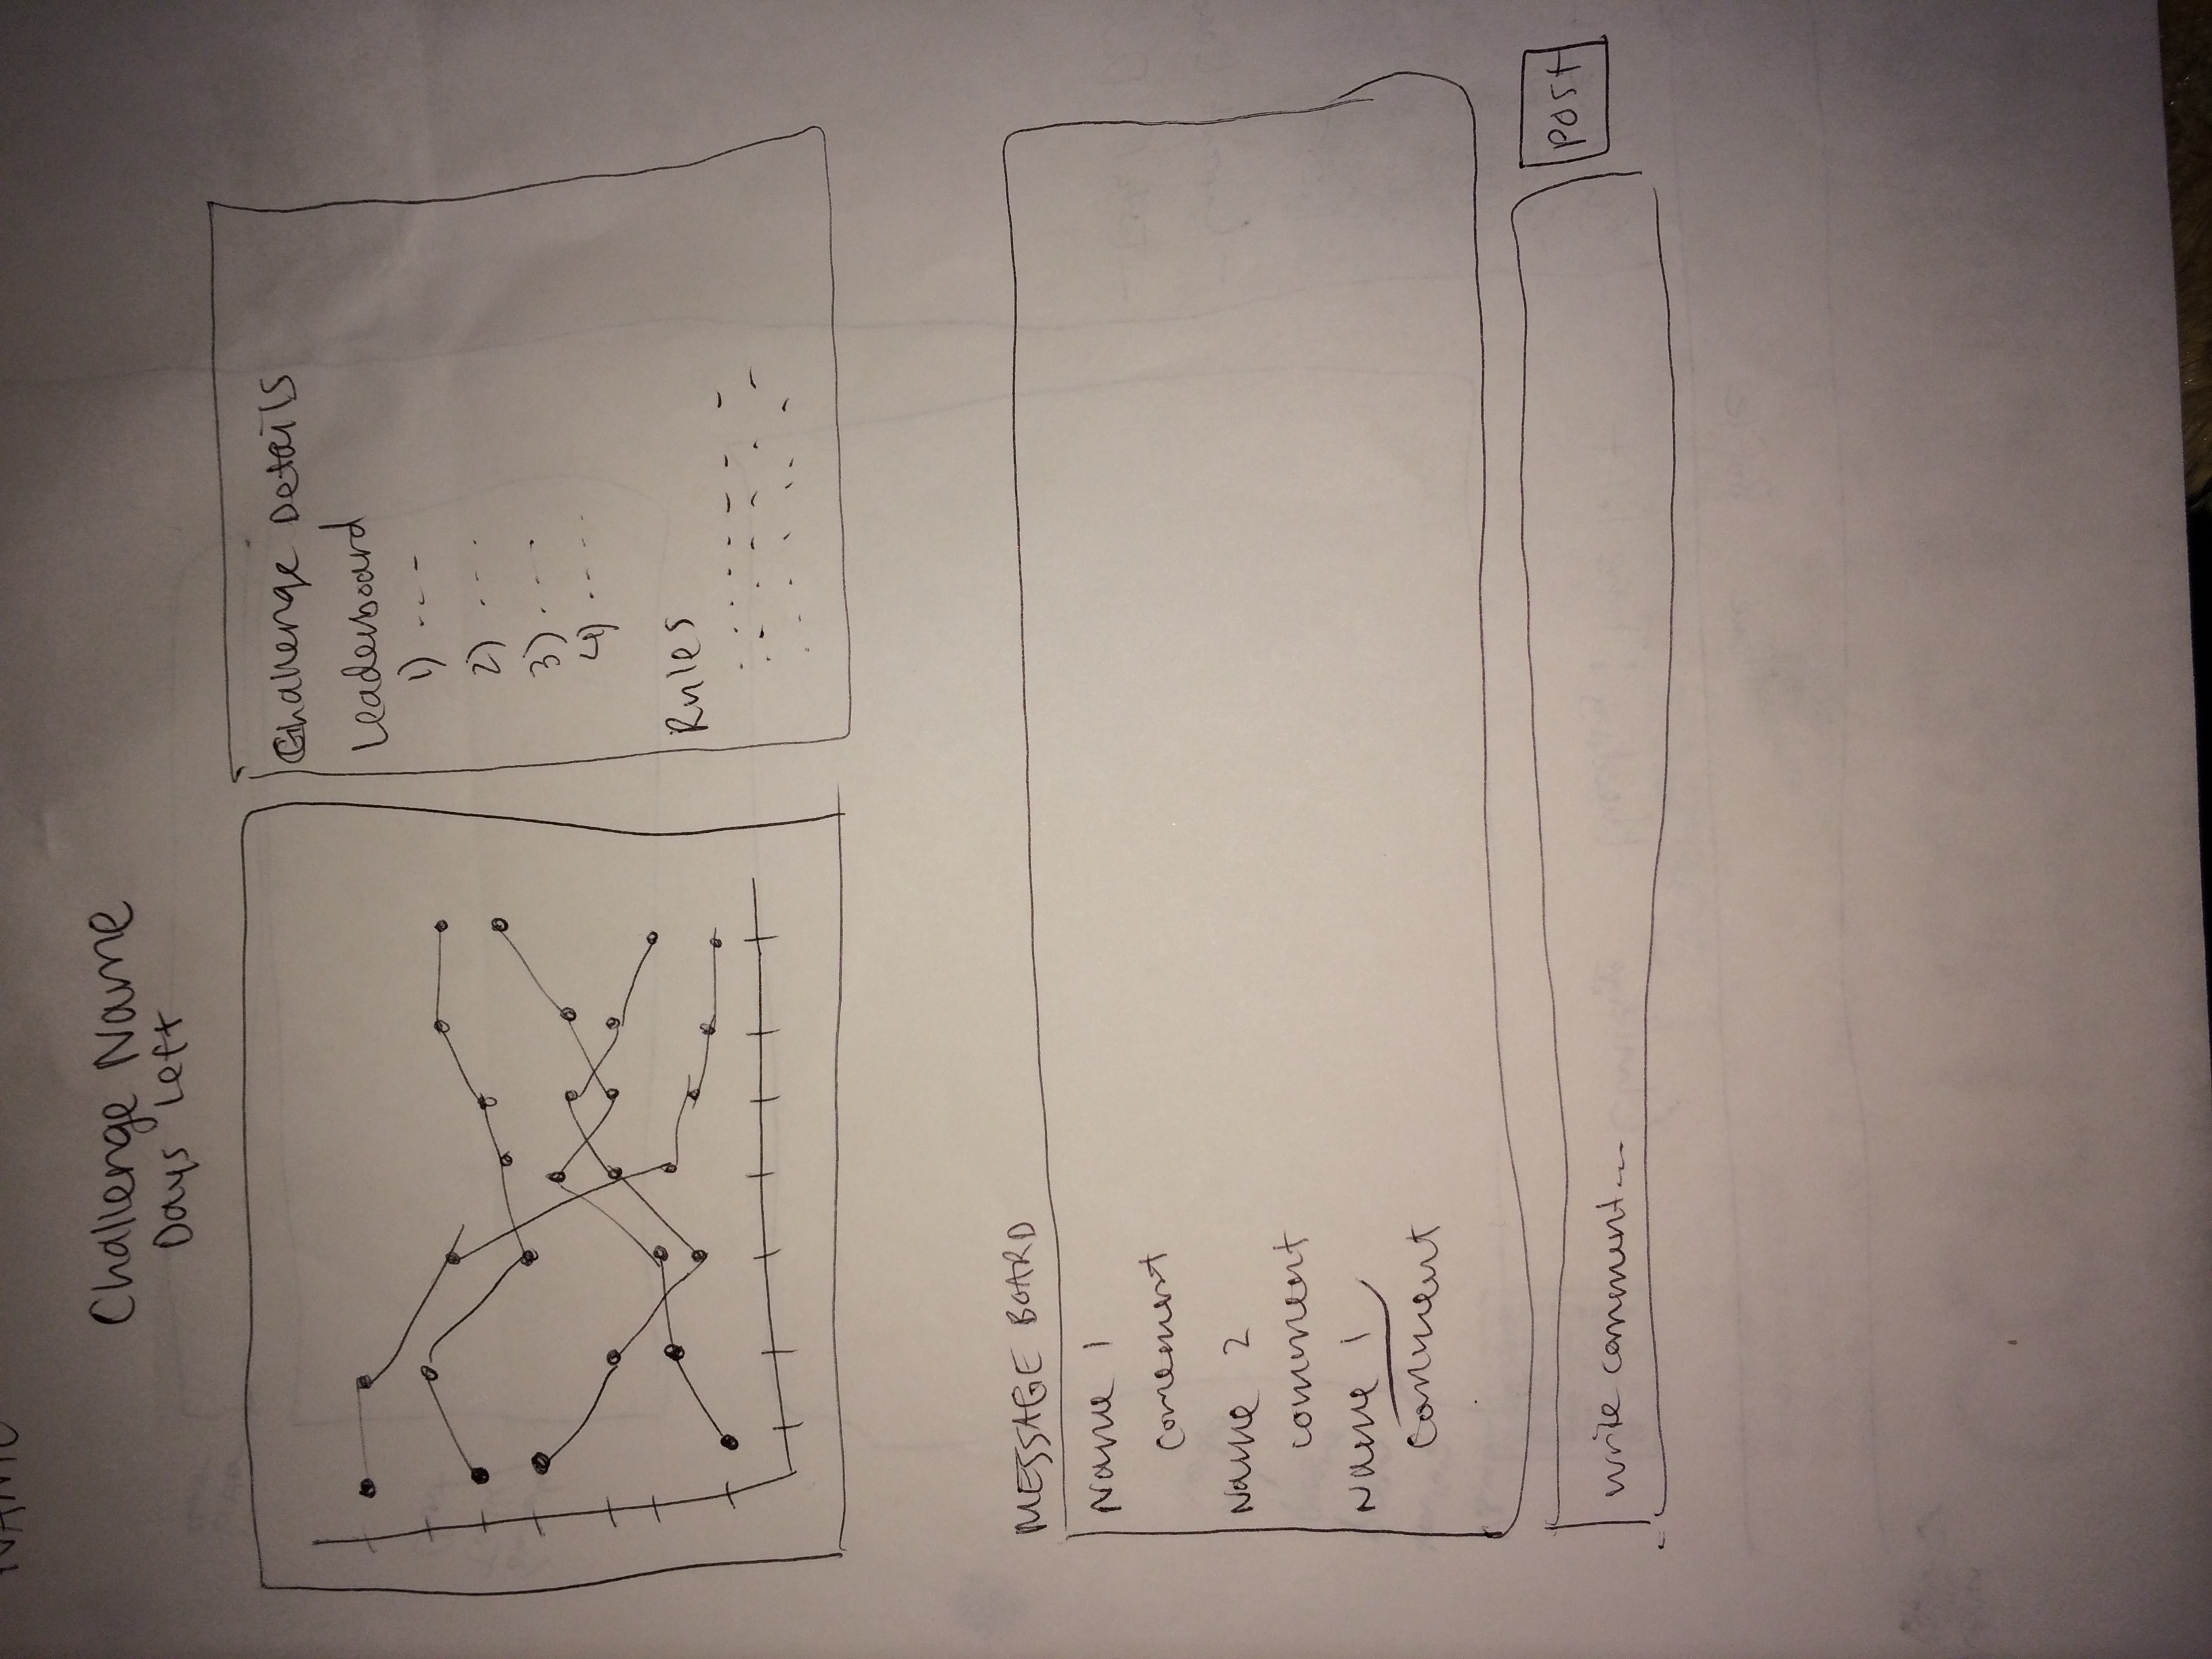 NAME
Challenge Name
Days Left
Challenge Details
Leaderboard
1) ---
2) ---
3) ---
4) ----
Rules
MESSAGE BOARD
Name 1
comment
Name 2
comment
Name 1
comment
write comment...
POST